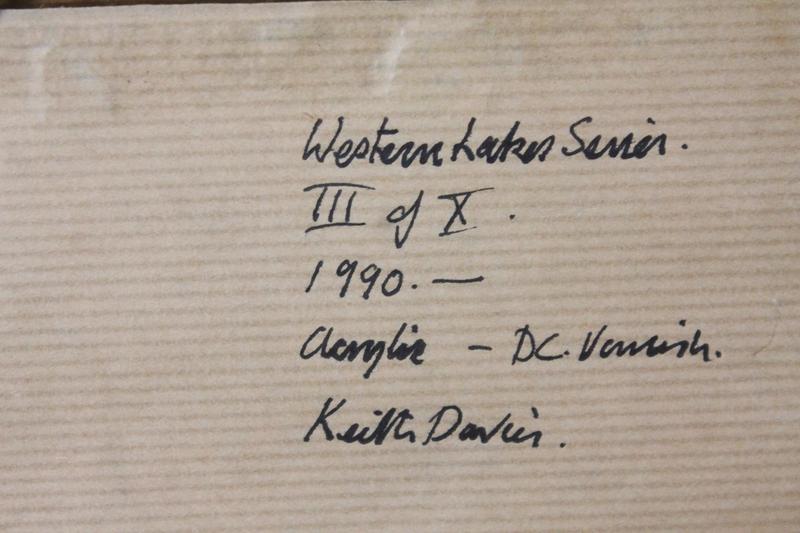 Western Lakes Series.
III of X.
1990.—
Acrylic – DC. Varnish.
Keith Davies.